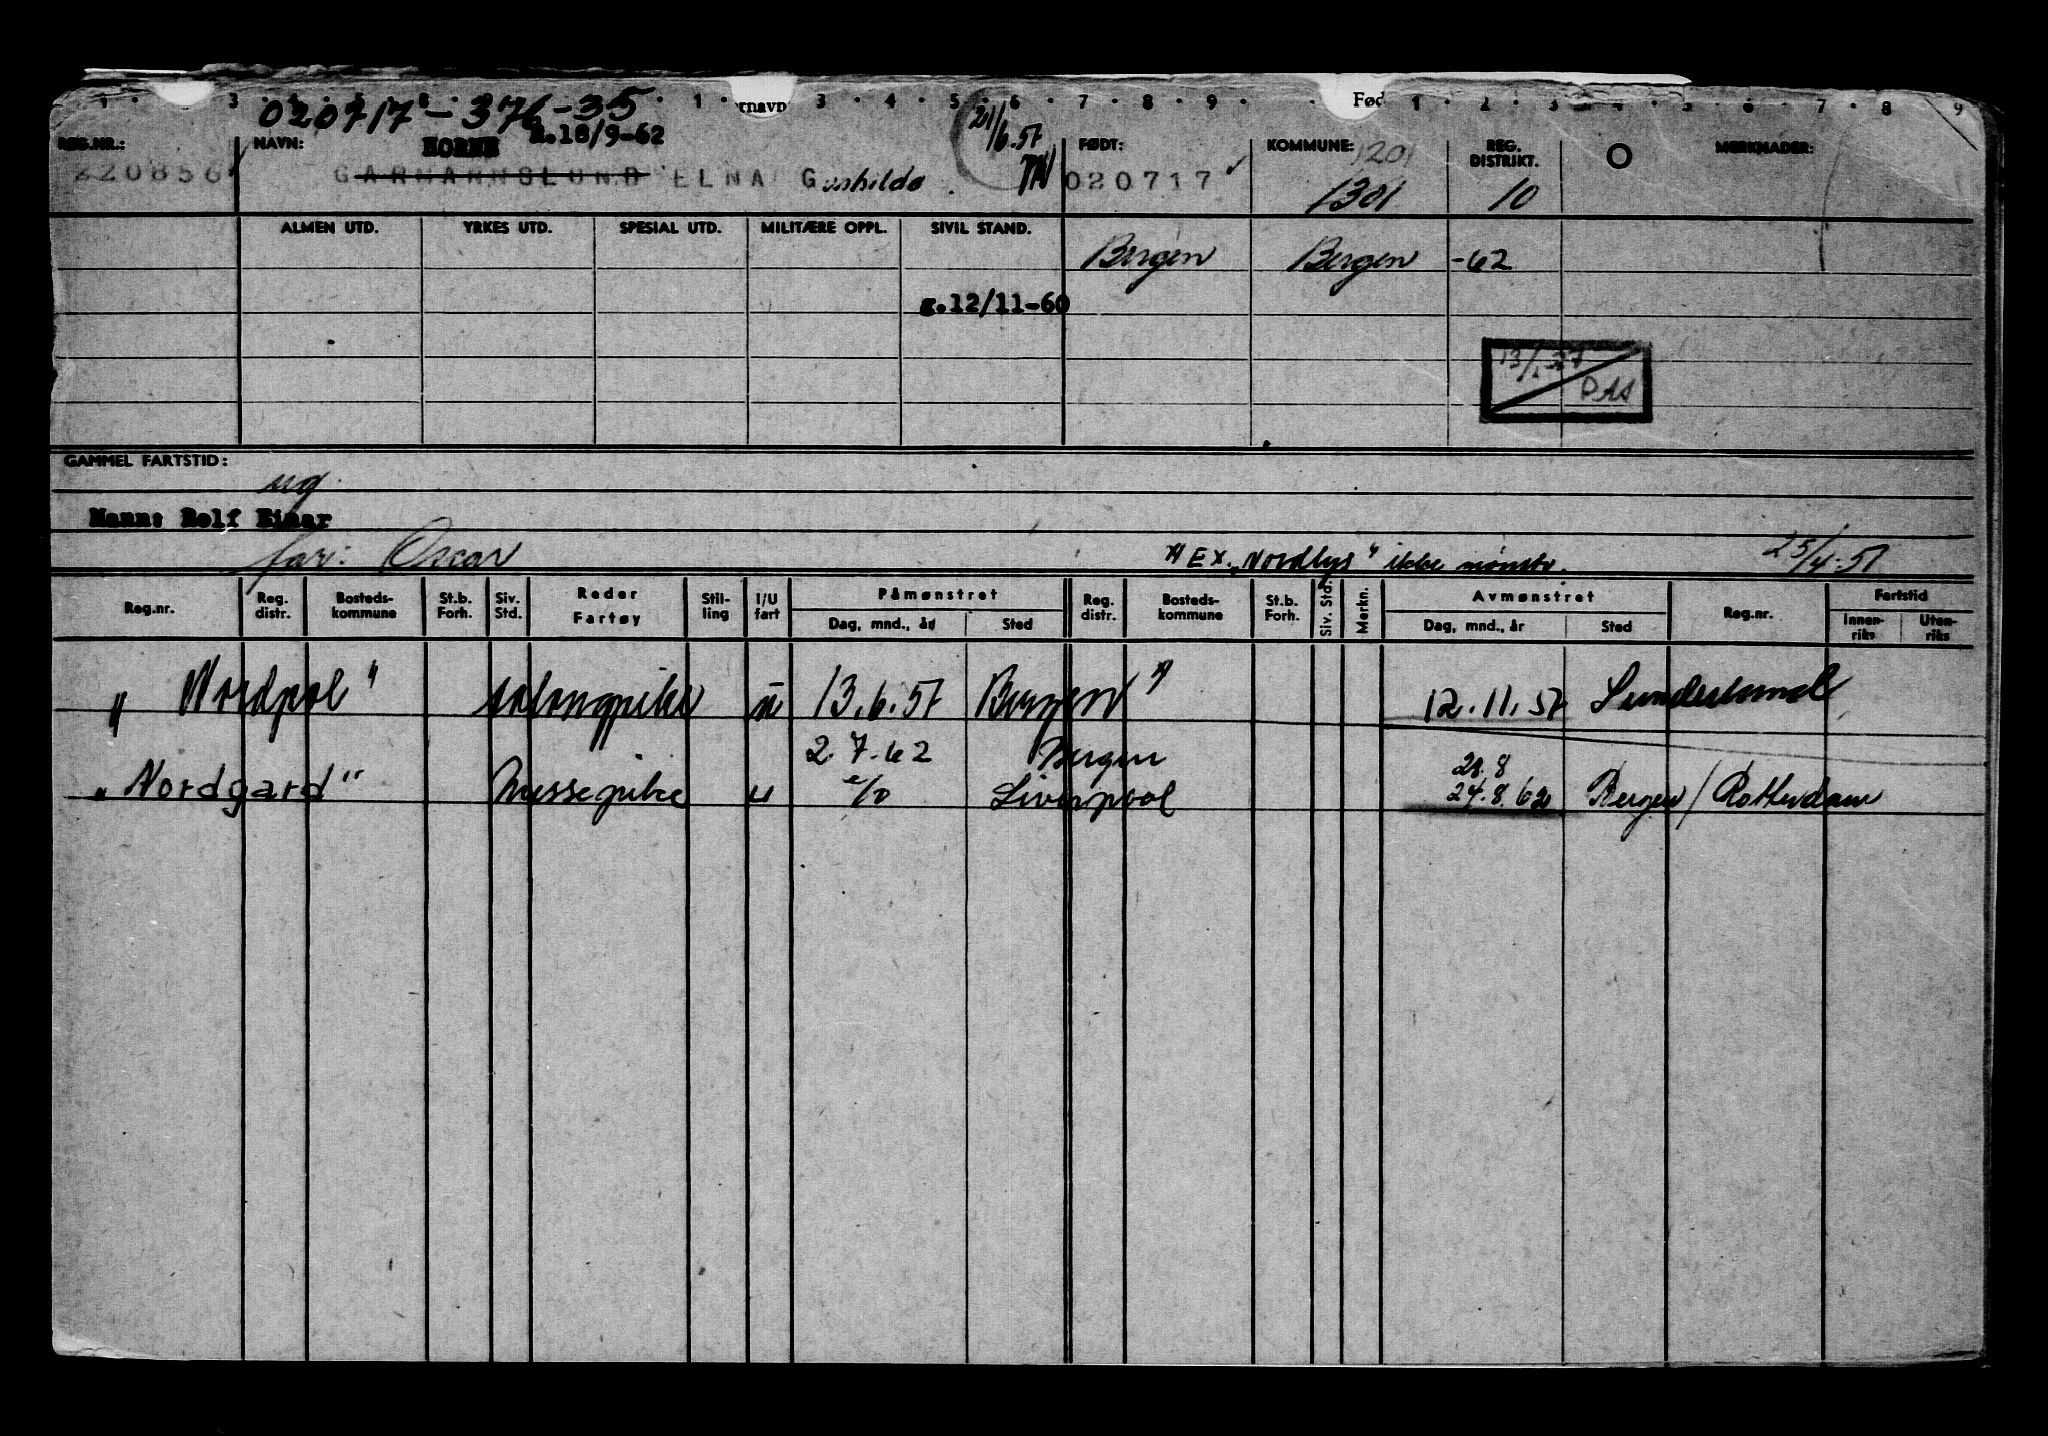 1 . . 3 . . . 1 . ernavn 3 . 4 . 5 . 6 . 7 . 8 . 9 . Fød 1 . 2 . 3 . 5 . 6 . 7 . 8 9
020717-376-35
HORNE n.18/9-62
21/6.57
REG.NR.: NAVN: FØDT: KOMMUNE: 1201 REG. DISTRIKT. MERKNADER:
220856 GARMANNSLUND ELNA Gunhilde 020717 1301 10
ALMEN UTD. YRKES UTD. SPESIAL UTD. MILITÆRE OPPL. SIVIL STAND.
Bergen Bergen -62
g.12/11-60
GAMMEL FARTSTID:
ug
Mann: Rolf Einar
far: Oscar EX. "Nordlys" ikke mønstr. 25/4.57
Reg.nr. Reg. distr. Bosteds-kommune St.b. Forh. Siv. Std. Reder Fartøy Stil-ling I/U fart Påmønstret Dag, mnd., år Sted Reg. distr. Bosteds-kommune St.b. Forh. Siv. Std. Merkn. Avmønstret Dag, mnd., år Sted Reg.nr. Fartstid Innen-riks Uten-riks
"Nordpol" salongpike u 13.6.57 Bergen 12.11.57
2.7.62 Bergen 21.8
"Nordgard" messepike u Liverpool 24.8.62 Bergen/Rotterdam